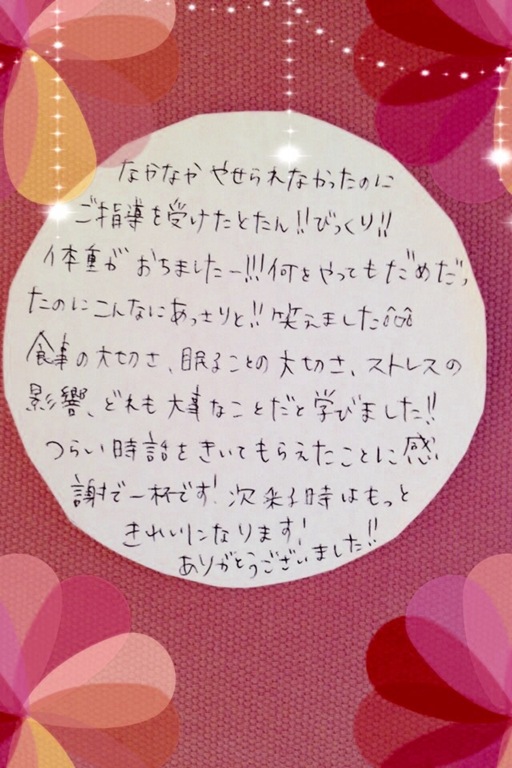 なかなか やせられなかったのに
ご指導を受けたとたん!!びっくり!!
体重が おちましたー!!!何をやってもだめだっ
たのにこんなにあっさりと!!笑えました
食事の大切さ、眠ることの大切さ、ストレスの
影響、どれも大事なことだと学びました!!
つらい時話をきいてもらえたことに感
謝で一杯です!次来る時はもっと
きれいになります!
ありがとうございました!!